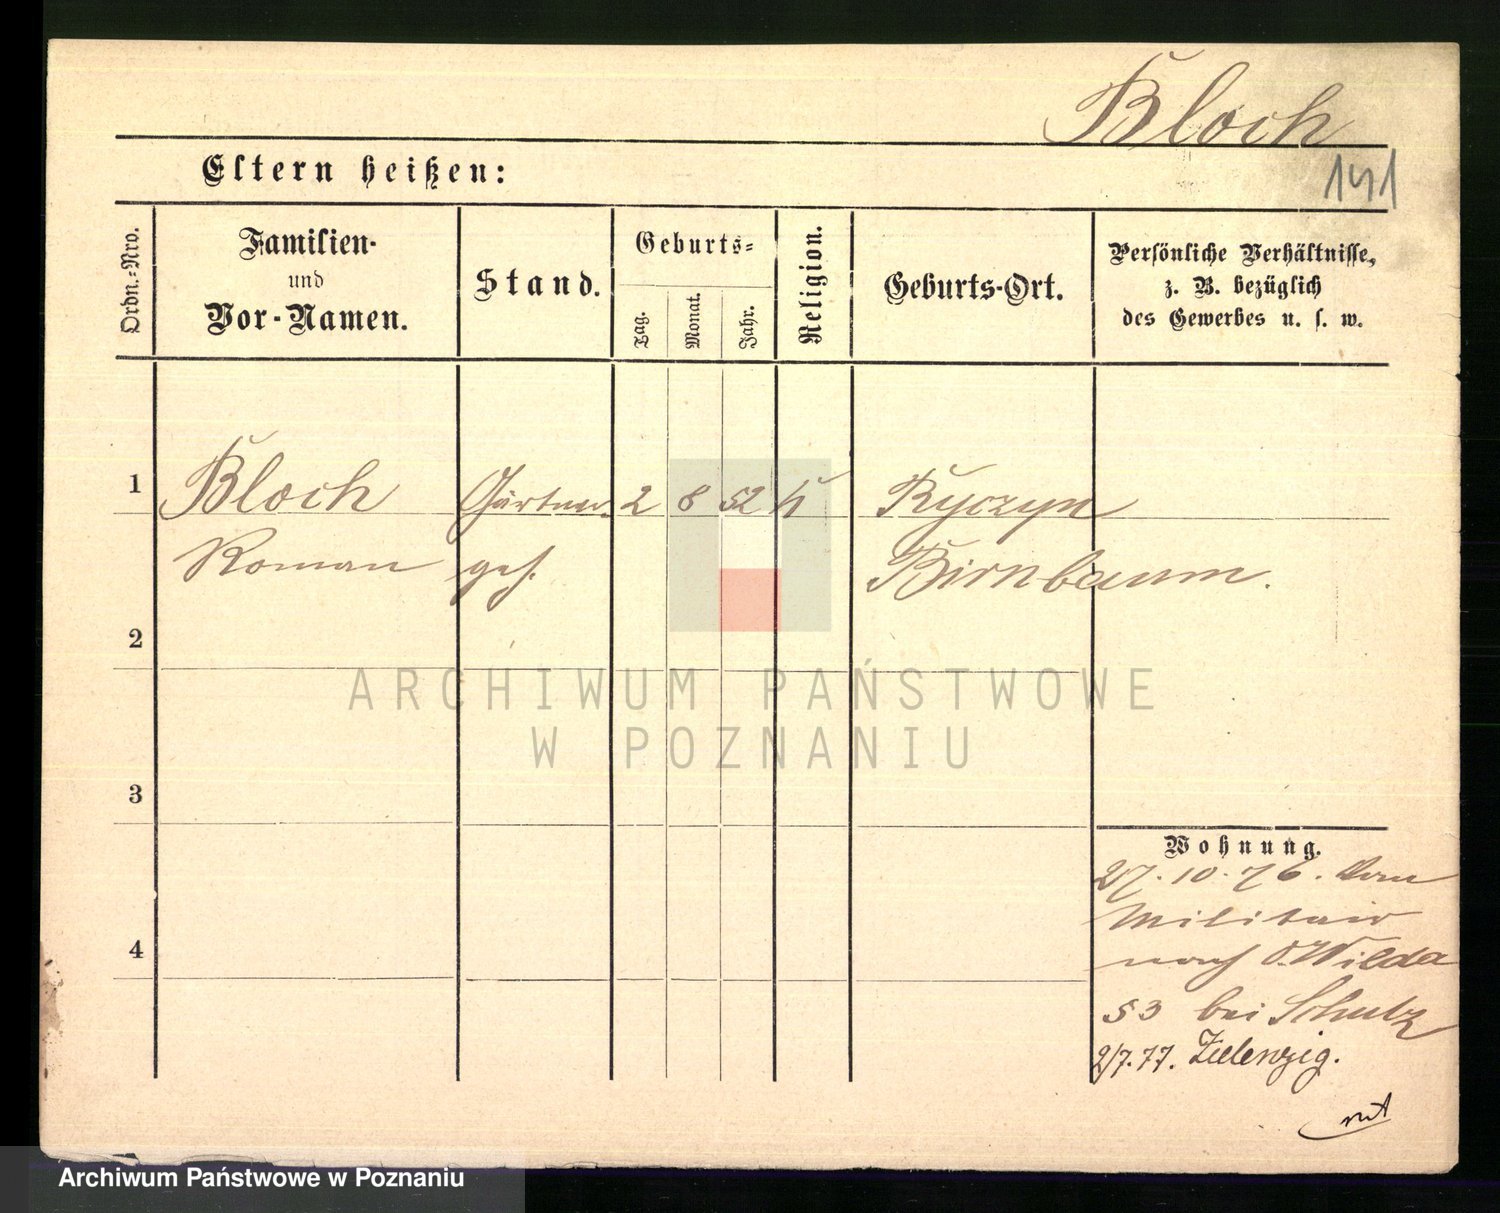 Bloch
141
Eltern heißen:
Ordn.-Nro.
Familien-
und
Vor-Namen.
Stand.
Geburts-
Tag.
Monat.
Jahr.
Religion.
Geburts-Ort.
Persönliche Verhältnisse,
z. B. bezüglich
des Gewerbes u. s. w.
1 Bloch Gärtner 2 8 52 k Ryczyn
Roman geh. Birnbaum.
2
3
4
ARCHIWUM PAŃSTWOWE
W POZNANIU
Wohnung.
27.10.76. Vom
Militair
nach O. Wilda
§3 bei Schulz
2/7.77. Zielenzig.
Archiwum Państwowe w Poznaniu